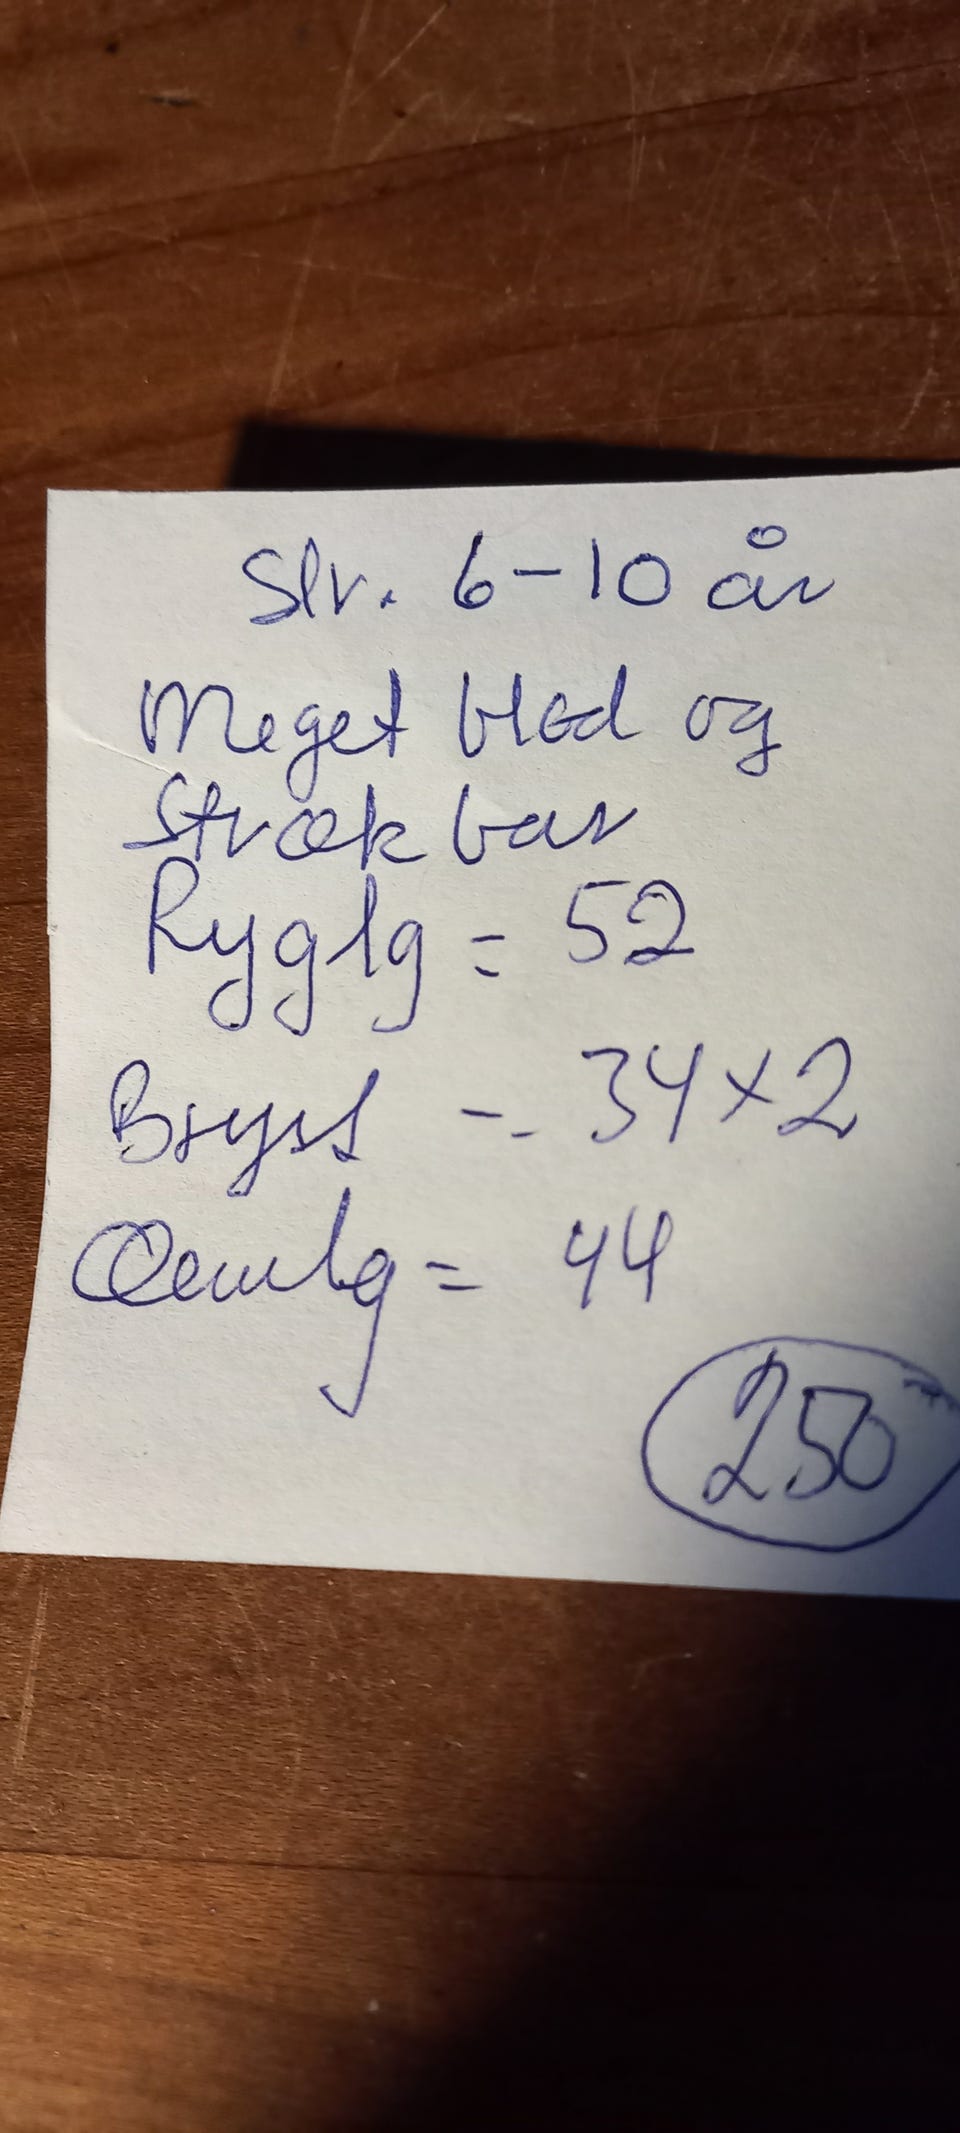 Str. 6-10 år
Meget blød og
strækbar
Ryglg = 52
Bryst = 34x2
Ærmlg = 44
250